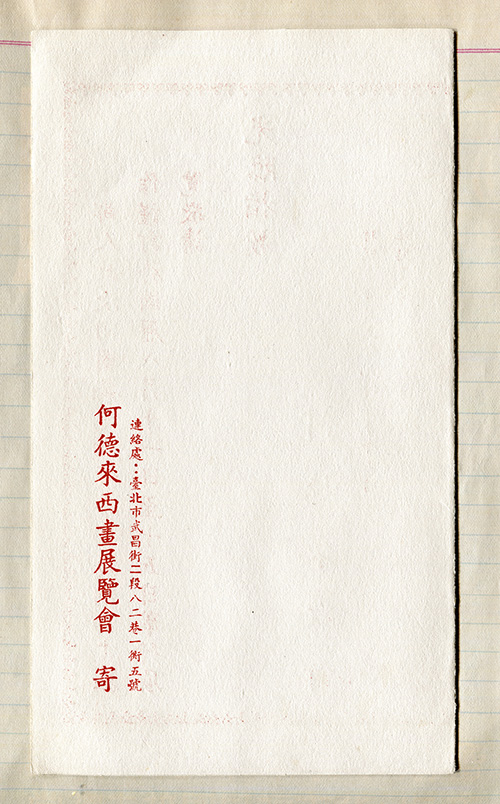 連絡處：臺北市武昌街二段八二巷一衖五號
何德來西畫展覽會　寄